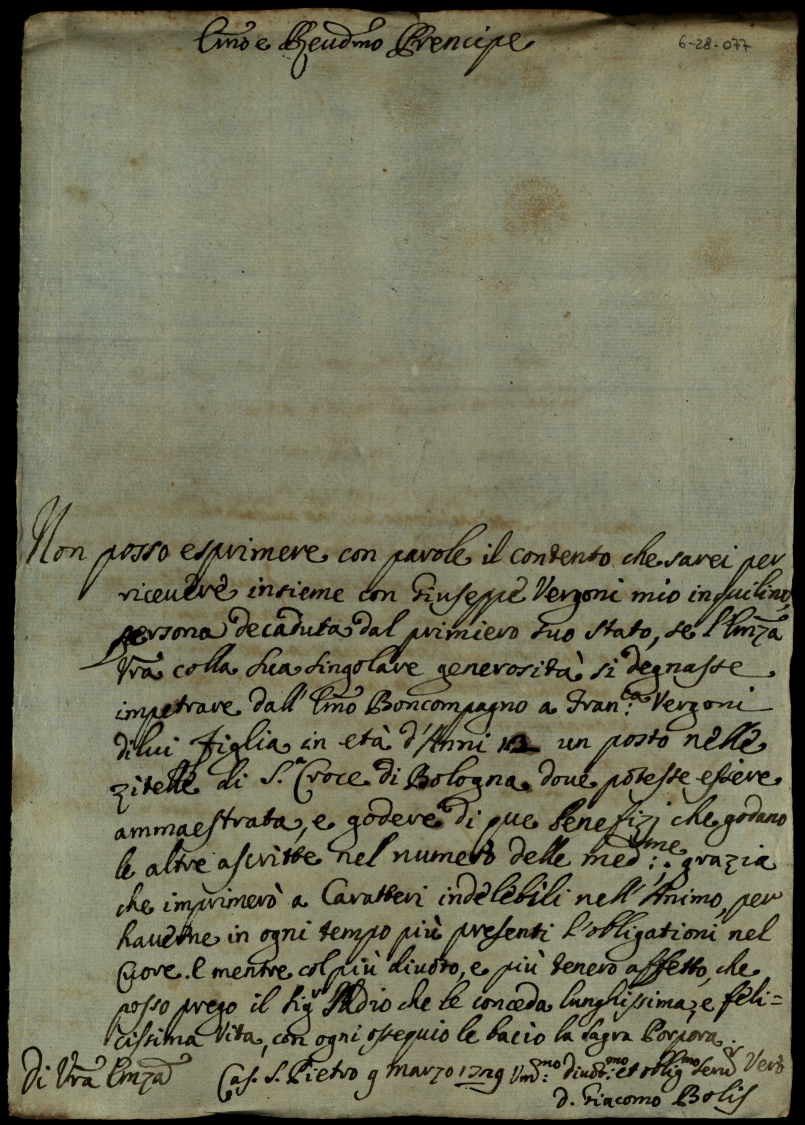 Emo e Reudmo Prencipe
6-28-077
Non posso esprimere con parole il contento che sarei per
riceuere insieme con Giuseppe Verzoni mio inquilino,
persona decaduta dal primiero suo stato, se l'Emza
Vra colla sua singolare generosità si degnasse
impetrare dall'Emo Boncompagno a Fran.ca Verzoni
di lui figlia in età d'Anni 12 un posto nelle
zitelle di S.a Croce di Bologna, doue potesse essere
ammaestrata, e godere di que benefizj che godano
le altre ascritte nel numero delle med:me: grazia
che imprimerò a Caratteri indelebili nell'Animo, per
hauerne in ogni tempo più presenti l'obbligationi nel
Cuore. E mentre col più diuoto, e più tenero affetto, che
posso prego il Sigr Iddio che le conceda lunghissima, e feli=
cissima Vita, con ogni ossequio le bacio la Sagra Porpora.
Di Vra Emza Cas. S. Pietro 9 marzo 1729 Vm:mo diuot:mo et oblig:mo Seru.r Vero
D. Giacomo Bolis